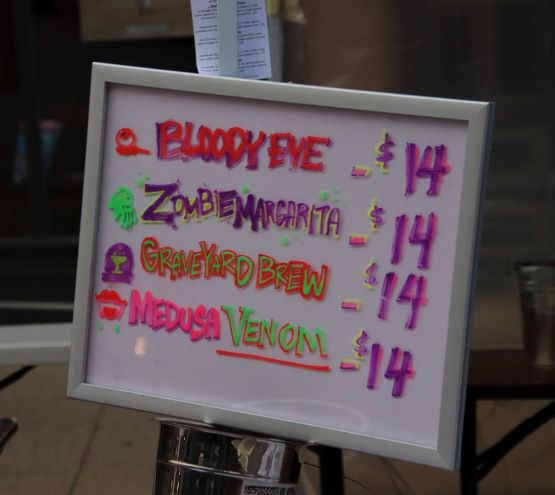 BLOODY EYE - $14
ZOMBIE MARGARITA - $14
GRAVEYARD BREW - $14
MEDUSA VENOM - $14